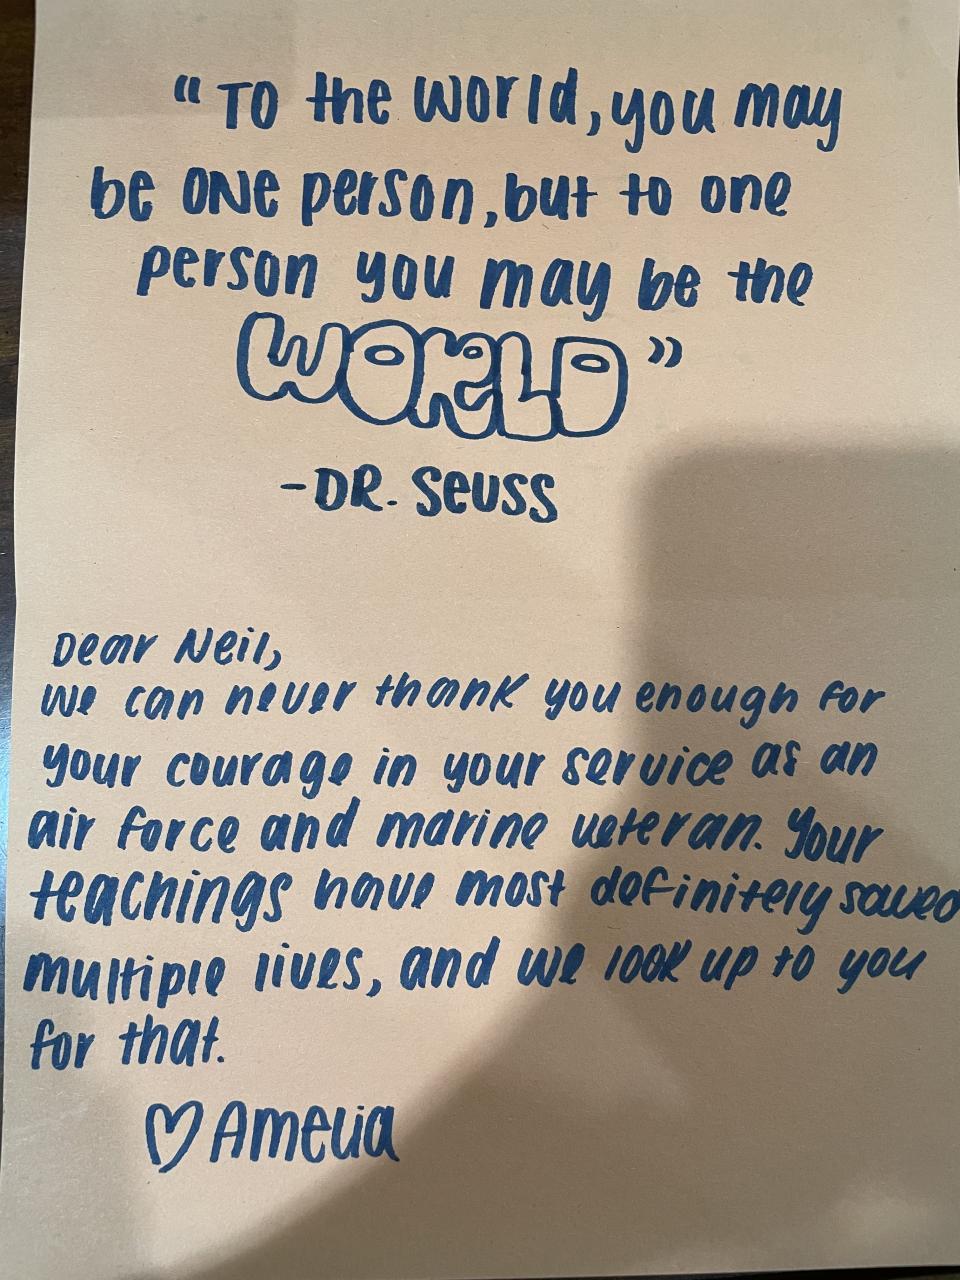 “TO the world, you may
be ONe person, but to one
person you may be the
WORLD”
-DR. Seuss
Dear Neil,
we can never thank you enough for
your courage in your service as an
air force and marine veteran. Your
teachings have most definitely saved
multiple lives, and we look up to you
for that.
♡ Amelia